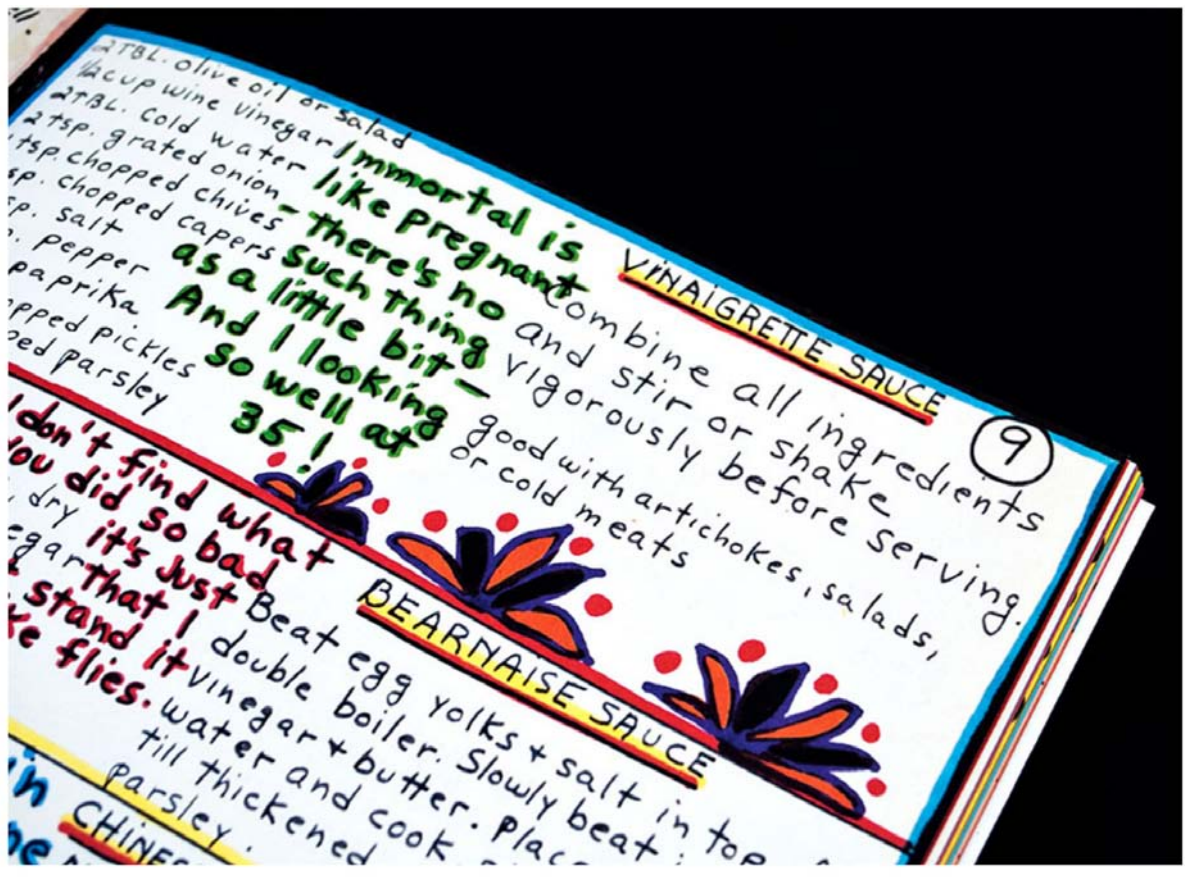 2 TBL. olive oil or salad
1/2 cup wine vinegar
2 TBL. cold water
2 tsp. grated onion
tsp. chopped chives
sp. chopped capers
sp. salt
pepper
paprika
pped pickles
ped parsley
Immortal is
like pregnant
- there's no
such thing
as a little bit -
And I looking
so well at
35!
VINAIGRETTE SAUCE
Combine all ingredients
and stir or shake
vigorously before serving.
good with artichokes, salads,
or cold meats
9
I don't find what
you did so bad
it's just
that I
stand it
ke flies.
dry
egar
BEARNAISE SAUCE
Beat egg yolks + salt in top
double boiler. Slowly beat
vinegar + butter. Plac
water and cook
till thickened
parsley.
in
CHINES